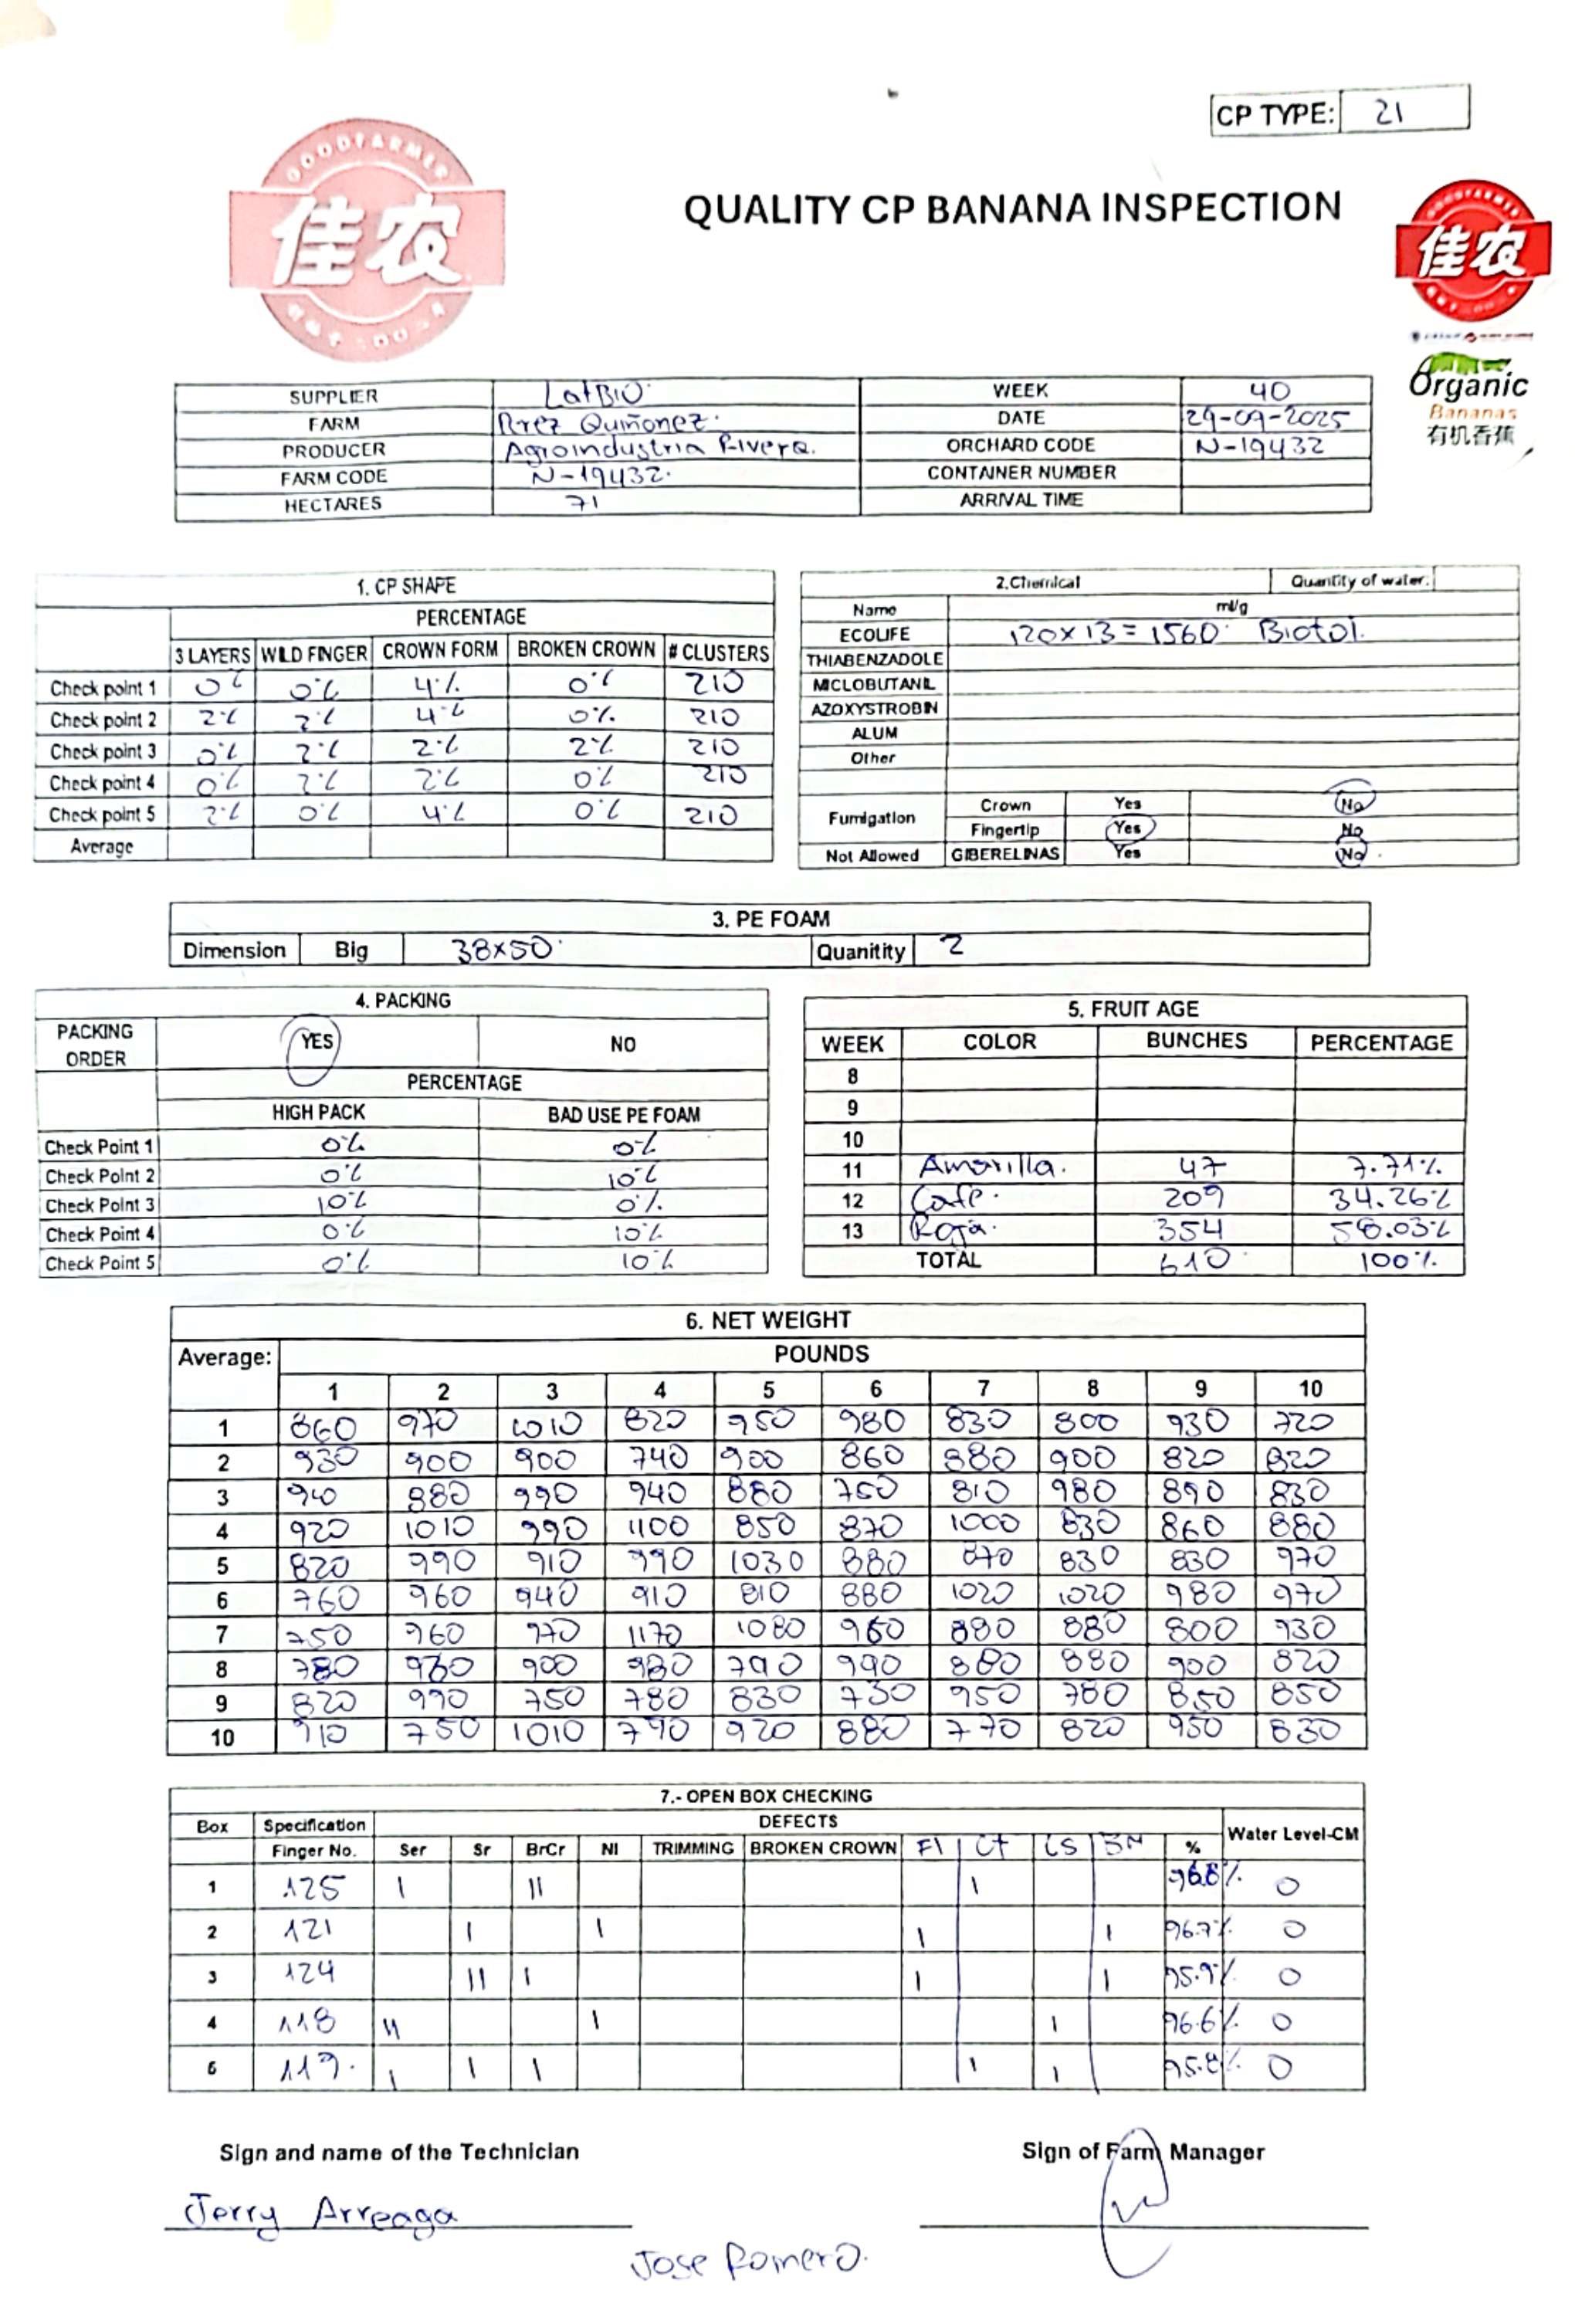 CP TYPE: 21
GOODFARMER
佳农
QUALITY CP BANANA INSPECTION
佳农
Organic
Bananas
有机香蕉
SUPPLIER LatBIO. WEEK 40
FARM Prez Quiñonez. DATE 29-09-2025
PRODUCER Agroindustria Rivera. ORCHARD CODE N-19432
FARM CODE N-19432. CONTAINER NUMBER
HECTARES 71 ARRIVAL TIME
1. CP SHAPE
PERCENTAGE
3 LAYERS WILD FINGER CROWN FORM BROKEN CROWN # CLUSTERS
Check point 1 0% 0% 4% 0% 210
Check point 2 2% 2% 4% 0% 210
Check point 3 0% 2% 2% 2% 210
Check point 4 0% 2% 2% 0% 210
Check point 5 2% 0% 4% 0% 210
Average
2.Chemical Quantity of water:
Name ml/g
ECOLIFE 120x13=1560. Biotol.
THIABENZADOLE
MICLOBUTANIL
AZOXYSTROBIN
ALUM
Other
Fumigation Crown Yes No
Fingertip Yes No
Not Allowed GIBERELINAS Yes No
3. PE FOAM
Dimension Big 38x50. Quanitity 2
4. PACKING
PACKING ORDER YES NO
PERCENTAGE
HIGH PACK BAD USE PE FOAM
Check Point 1 0% 0%
Check Point 2 0% 10%
Check Point 3 10% 0%
Check Point 4 0% 10%
Check Point 5 0% 10%
5. FRUIT AGE
WEEK COLOR BUNCHES PERCENTAGE
8
9
10
11 Amarilla. 47 7.71%
12 Cafe. 209 34.26%
13 Roja. 354 58.03%
TOTAL 610 100%
6. NET WEIGHT
Average: POUNDS
1 2 3 4 5 6 7 8 9 10
1 860 970 1010 820 950 980 830 800 930 720
2 930 900 900 740 900 860 880 900 820 820
3 940 880 990 940 880 750 810 980 890 830
4 920 1010 990 1100 850 870 1000 830 860 880
5 820 990 910 990 1030 880 870 830 830 970
6 760 960 940 910 810 880 1020 1020 980 970
7 750 960 970 1170 1080 960 890 880 800 930
8 780 930 900 980 790 990 880 880 900 820
9 820 990 750 780 830 730 950 780 850 850
10 910 750 1010 790 920 880 770 820 950 830
7.- OPEN BOX CHECKING
Box Specification DEFECTS Water Level-CM
Finger No. Ser Sr BrCr NI TRIMMING BROKEN CROWN FI CT LS BN %
1 125 I II I 96.8% 0
2 121 I I I I 96.7% 0
3 124 II I I I 95.9% 0
4 118 II I I 96.6% 0
5 119. I I I I I 95.8% 0
Sign and name of the Technician Sign of Farm Manager
Jerry Arreaga
Jose Romero.